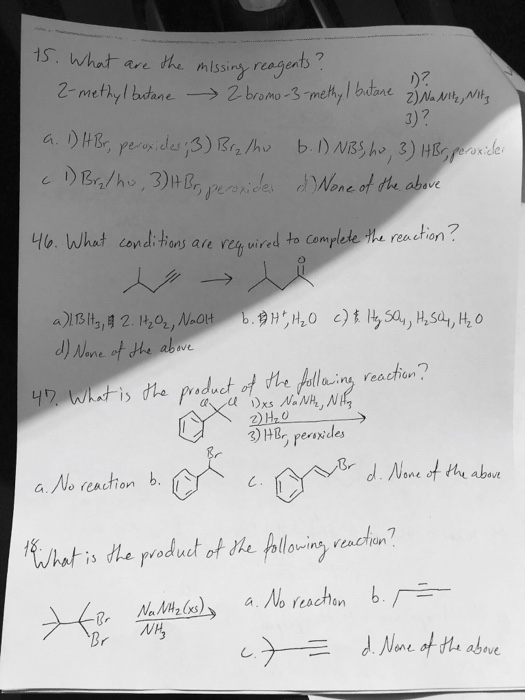 45. What are the missing reagents?
2-methyl butane → 2 bromo-3-methyl butane 1)? 2) NaNH₂, NH₃ 3)?
a. 1) HBr, peroxides; 3) Br₂/hν b. 1) NBS, hν, 3) HBr, peroxides
c 1) Br₂/hν, 3) HBr, peroxides d) None of the above
46. What conditions are required to complete the reaction?
O
a) 1. BH₃, 2. H₂O₂, NaOH b. H⁺, H₂O c) H₂SO₄, H₂O
d) None of the above
47. What is the product of the following reaction?
Cl Cl 1) xs NaNH₂, NH₃
2) H₂O
3) HBr, peroxides
a. No reaction b. Br c. Br d. None of the above
48. What is the product of the following reaction?
Br Br NaNH₂ (xs) NH₃ a. No reaction b.
c. d. None of the above